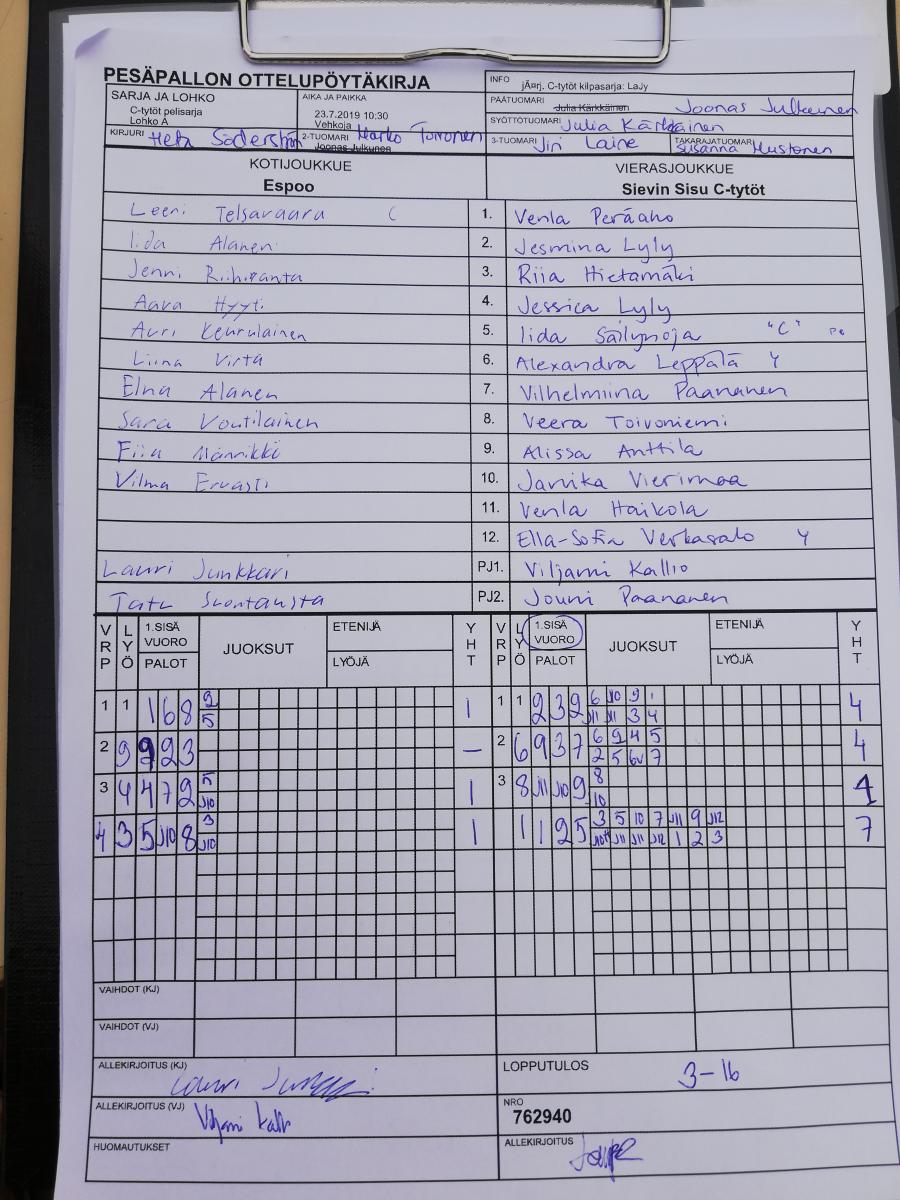 PESÄPALLON OTTELUPÖYTÄKIRJA
INFO jÄ¤rj. C-tytöt kilpasarja: LaJy
SARJA JA LOHKO
C-tytöt pelisarja
Lohko A
AIKA JA PAIKKA
23.7.2019 10:30
Vehkoja
PÄÄTUOMARI Julia Kärkkäinen Joonas Julkunen
SYÖTTÖTUOMARI Julia Kärkkäinen
KIRJURI Heta
2-TUOMARI Marko Toivonen
Joonas Julkunen
3-TUOMARI Jiri Laine
TAKARAJATUOMARI Susanna Mustonen
KOTIJOUKKUE
Espoo
VIERASJOUKKUE
Sievin Sisu C-tytöt
Leeni C 1. Venla Peräaho
Iida Alanen 2. Jesmina Lyly
Jenni Riihiranta 3. Riia Hietamäki
Aava Hyyti 4. Jessica Lyly
Auri Keurulainen 5. Iida Säilynoja "C"
Liina Virta 6. Alexandra Leppälä Y
Elna Alanen 7. Vilhelmiina Paananen
Sara Voutilainen 8. Veera Toivoniemi
Fiia Männikkö 9. Alissa Anttila
Vilma Ervasti 10. Janika Vierimaa
11. Venla Haikola
12. Ella-Sofia Verkasalo Y
Lauri Junkkari PJ1. Viljami Kallio
Tatu PJ2. Jouni Paananen
VRP LYÖ 1.SISÄ VUORO PALOT JUOKSUT ETENIJÄ LYÖJÄ YHT VRP LYÖ 1.SISÄ VUORO PALOT JUOKSUT ETENIJÄ LYÖJÄ YHT
1 1 1 6 8 2 1 1 1 2 3 2 6 J10 9 1 4
5 J11 J11 3 4
2 9 9 2 3 — 2 6 9 3 7 6 9 4 5 4
2 5 6v 7
3 4 4 7 2 5 1 3 8 J11 J10 9 8 1
J10 10
4 3 5 J10 8 3 1 1 1 2 5 3 5 10 7 J11 9 J12 7
J10 J11 J11 J12 1 2 3
VAIHDOT (KJ)
VAIHDOT (VJ)
ALLEKIRJOITUS (KJ) Lauri
LOPPUTULOS 3-16
ALLEKIRJOITUS (VJ)
NRO
762940
HUOMAUTUKSET
ALLEKIRJOITUS